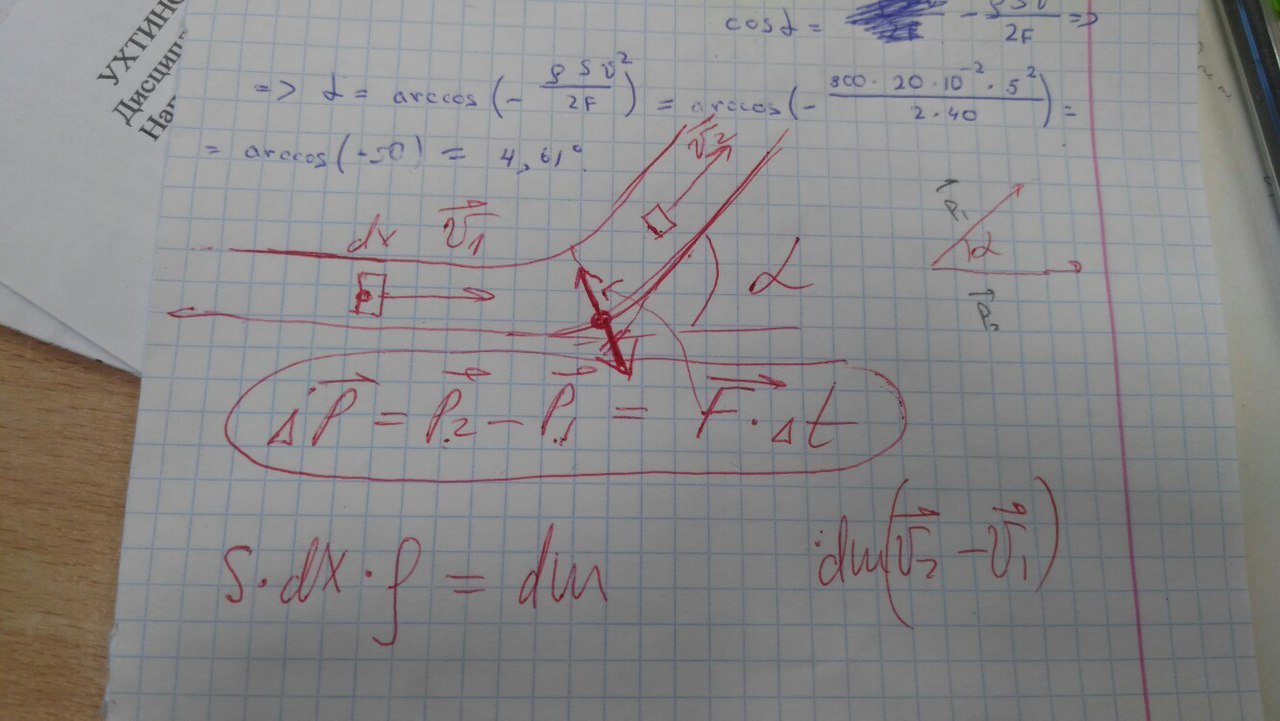 УХТИНС
Дисципл
На
cos α = - ρSv / 2F =>
=> α = arccos(- ρSv² / 2F) = arccos(- 800 · 20 · 10⁻² · 5² / 2 · 40) =
= arccos(-50) = 4,61°
dx v⃗₁ v⃗₂ α
P⃗₁ α P⃗₂
ΔP⃗ = P⃗₂ - P⃗₁ = F⃗ · Δt
S · dx · ρ = dm dm(v⃗₂ - v⃗₁)